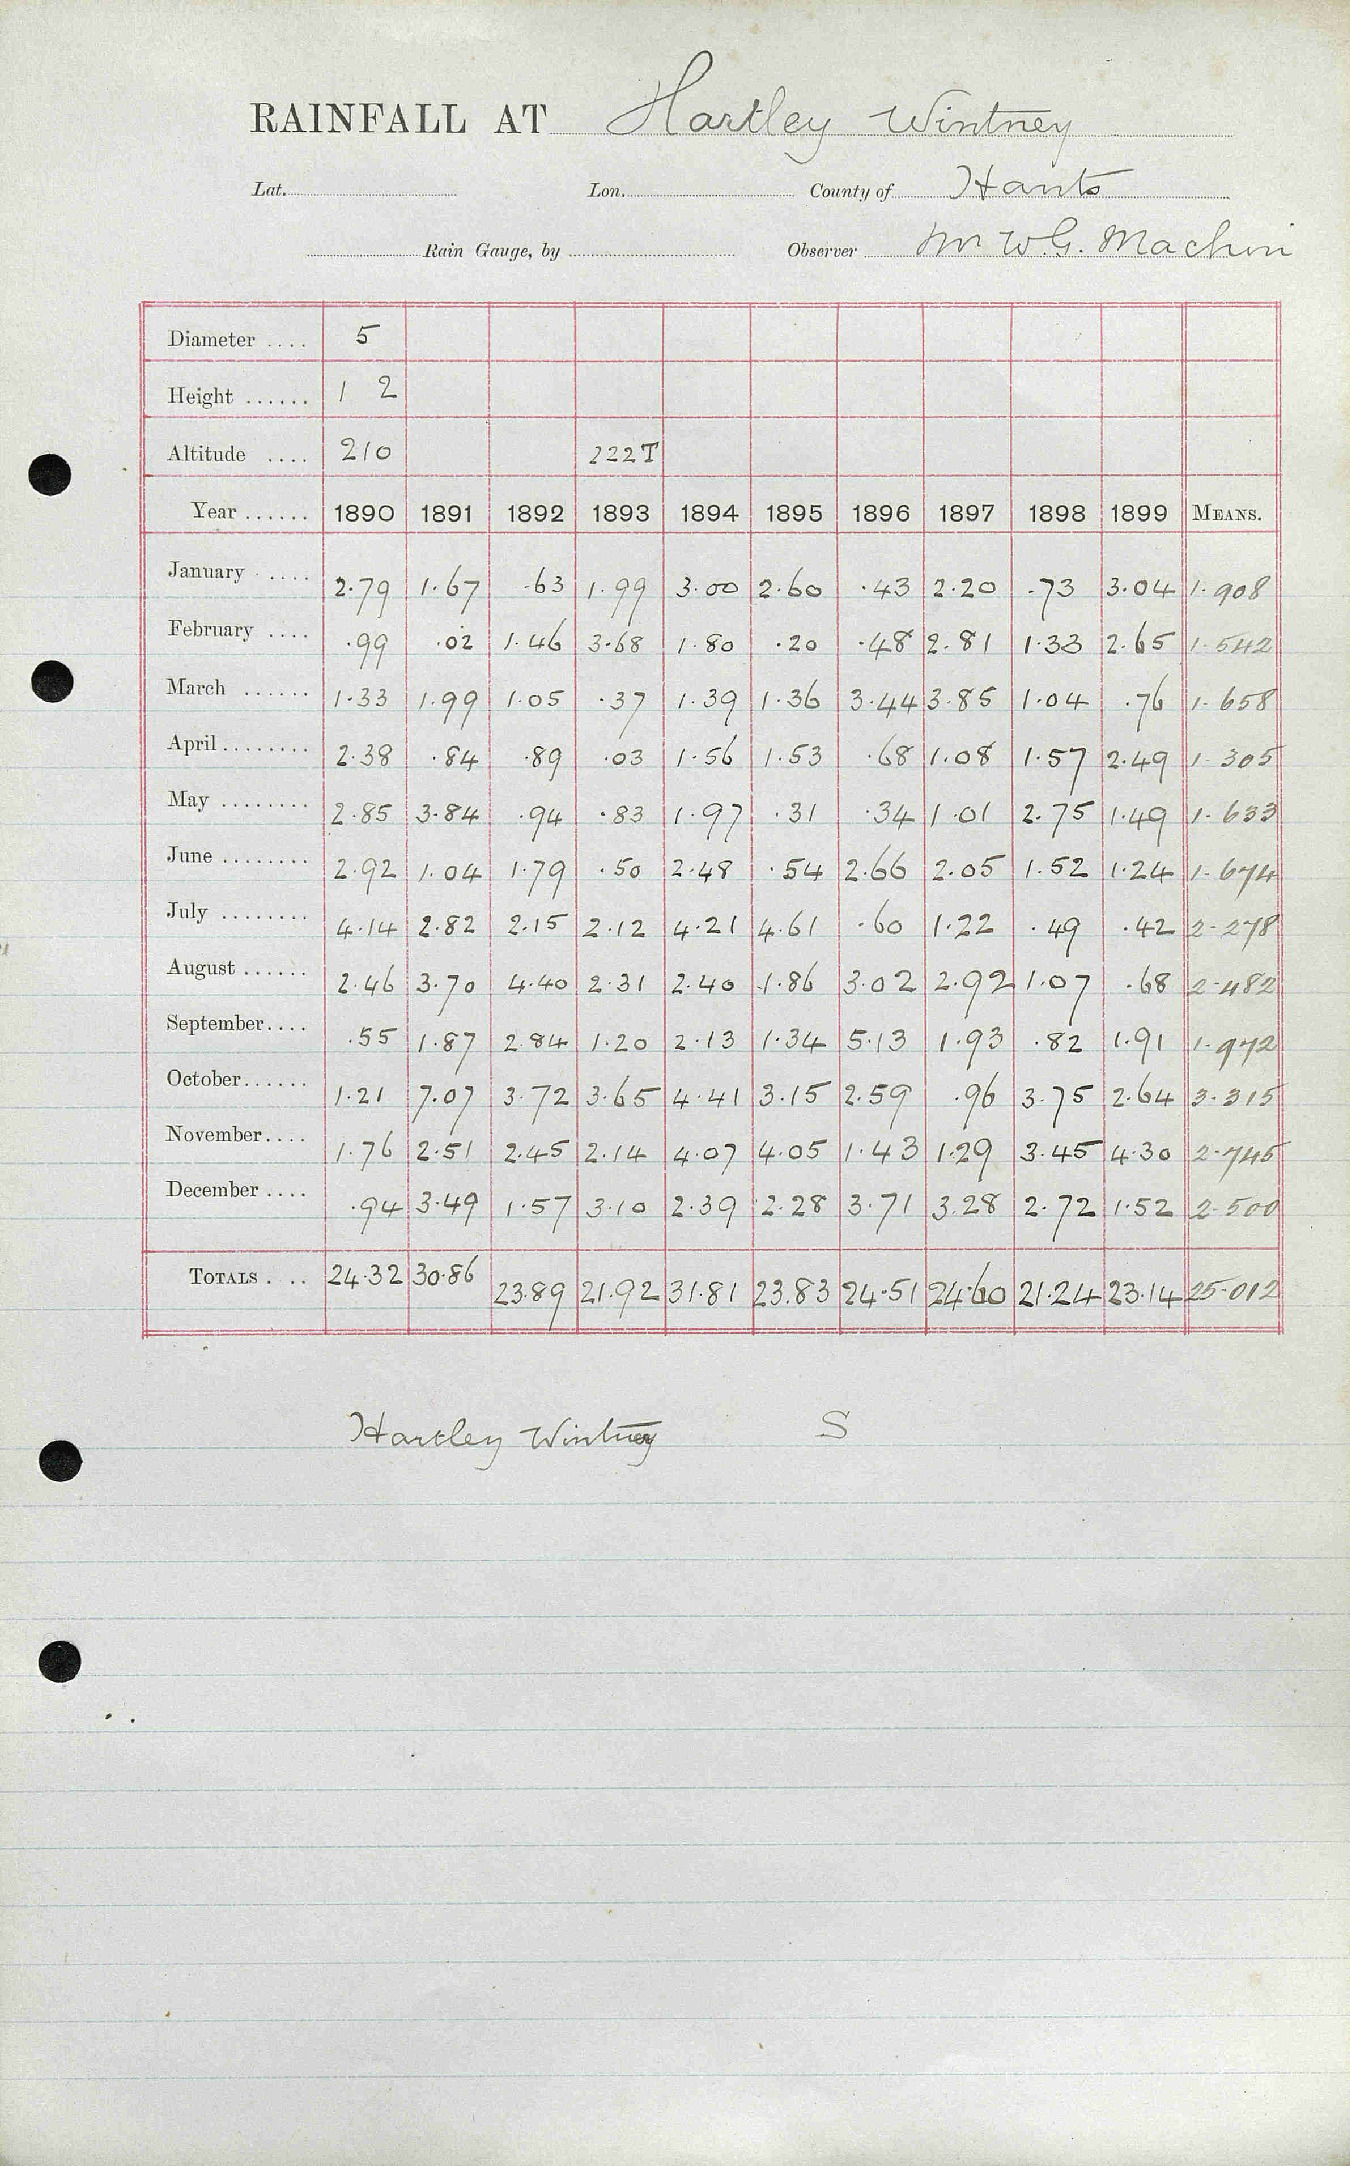 RAINFALL AT Hartley Wintney
Lat. Lon. County of Hants
Rain Gauge, by Observer Mr W.G. Machin
Diameter .... 5
Height ...... 1 2
Altitude .... 210 222T
Year ...... 1890 1891 1892 1893 1894 1895 1896 1897 1898 1899 MEANS.
January .... 2.79 1.67 .63 1.99 3.00 2.60 .43 2.20 .73 3.04 1.908
February .... .99 .02 1.46 3.68 1.80 .20 .48 2.81 1.33 2.65 1.542
March ...... 1.33 1.99 1.05 .37 1.39 1.36 3.44 3.85 1.04 .76 1.658
April ........ 2.38 .84 .89 .03 1.56 1.53 .68 1.08 1.57 2.49 1.305
May ........ 2.85 3.84 .94 .83 1.97 .31 .34 1.01 2.75 1.49 1.633
June ........ 2.92 1.04 1.79 .50 2.48 .54 2.66 2.05 1.52 1.24 1.674
July ........ 4.14 2.82 2.15 2.12 4.21 4.61 .60 1.22 .49 .42 2.278
August ...... 2.46 3.70 4.40 2.31 2.40 1.86 3.02 2.92 1.07 .68 2.482
September.... .55 1.87 2.84 1.20 2.13 1.34 5.13 1.93 .82 1.91 1.972
October...... 1.21 7.07 3.72 3.65 4.41 3.15 2.59 .96 3.75 2.64 3.315
November.... 1.76 2.51 2.45 2.14 4.07 4.05 1.43 1.29 3.45 4.30 2.745
December .... .94 3.49 1.57 3.10 2.39 2.28 3.71 3.28 2.72 1.52 2.500
TOTALS . .. 24.32 30.86 23.89 21.92 31.81 23.83 24.51 24.60 21.24 23.14 25.012
Hartley Wintney S